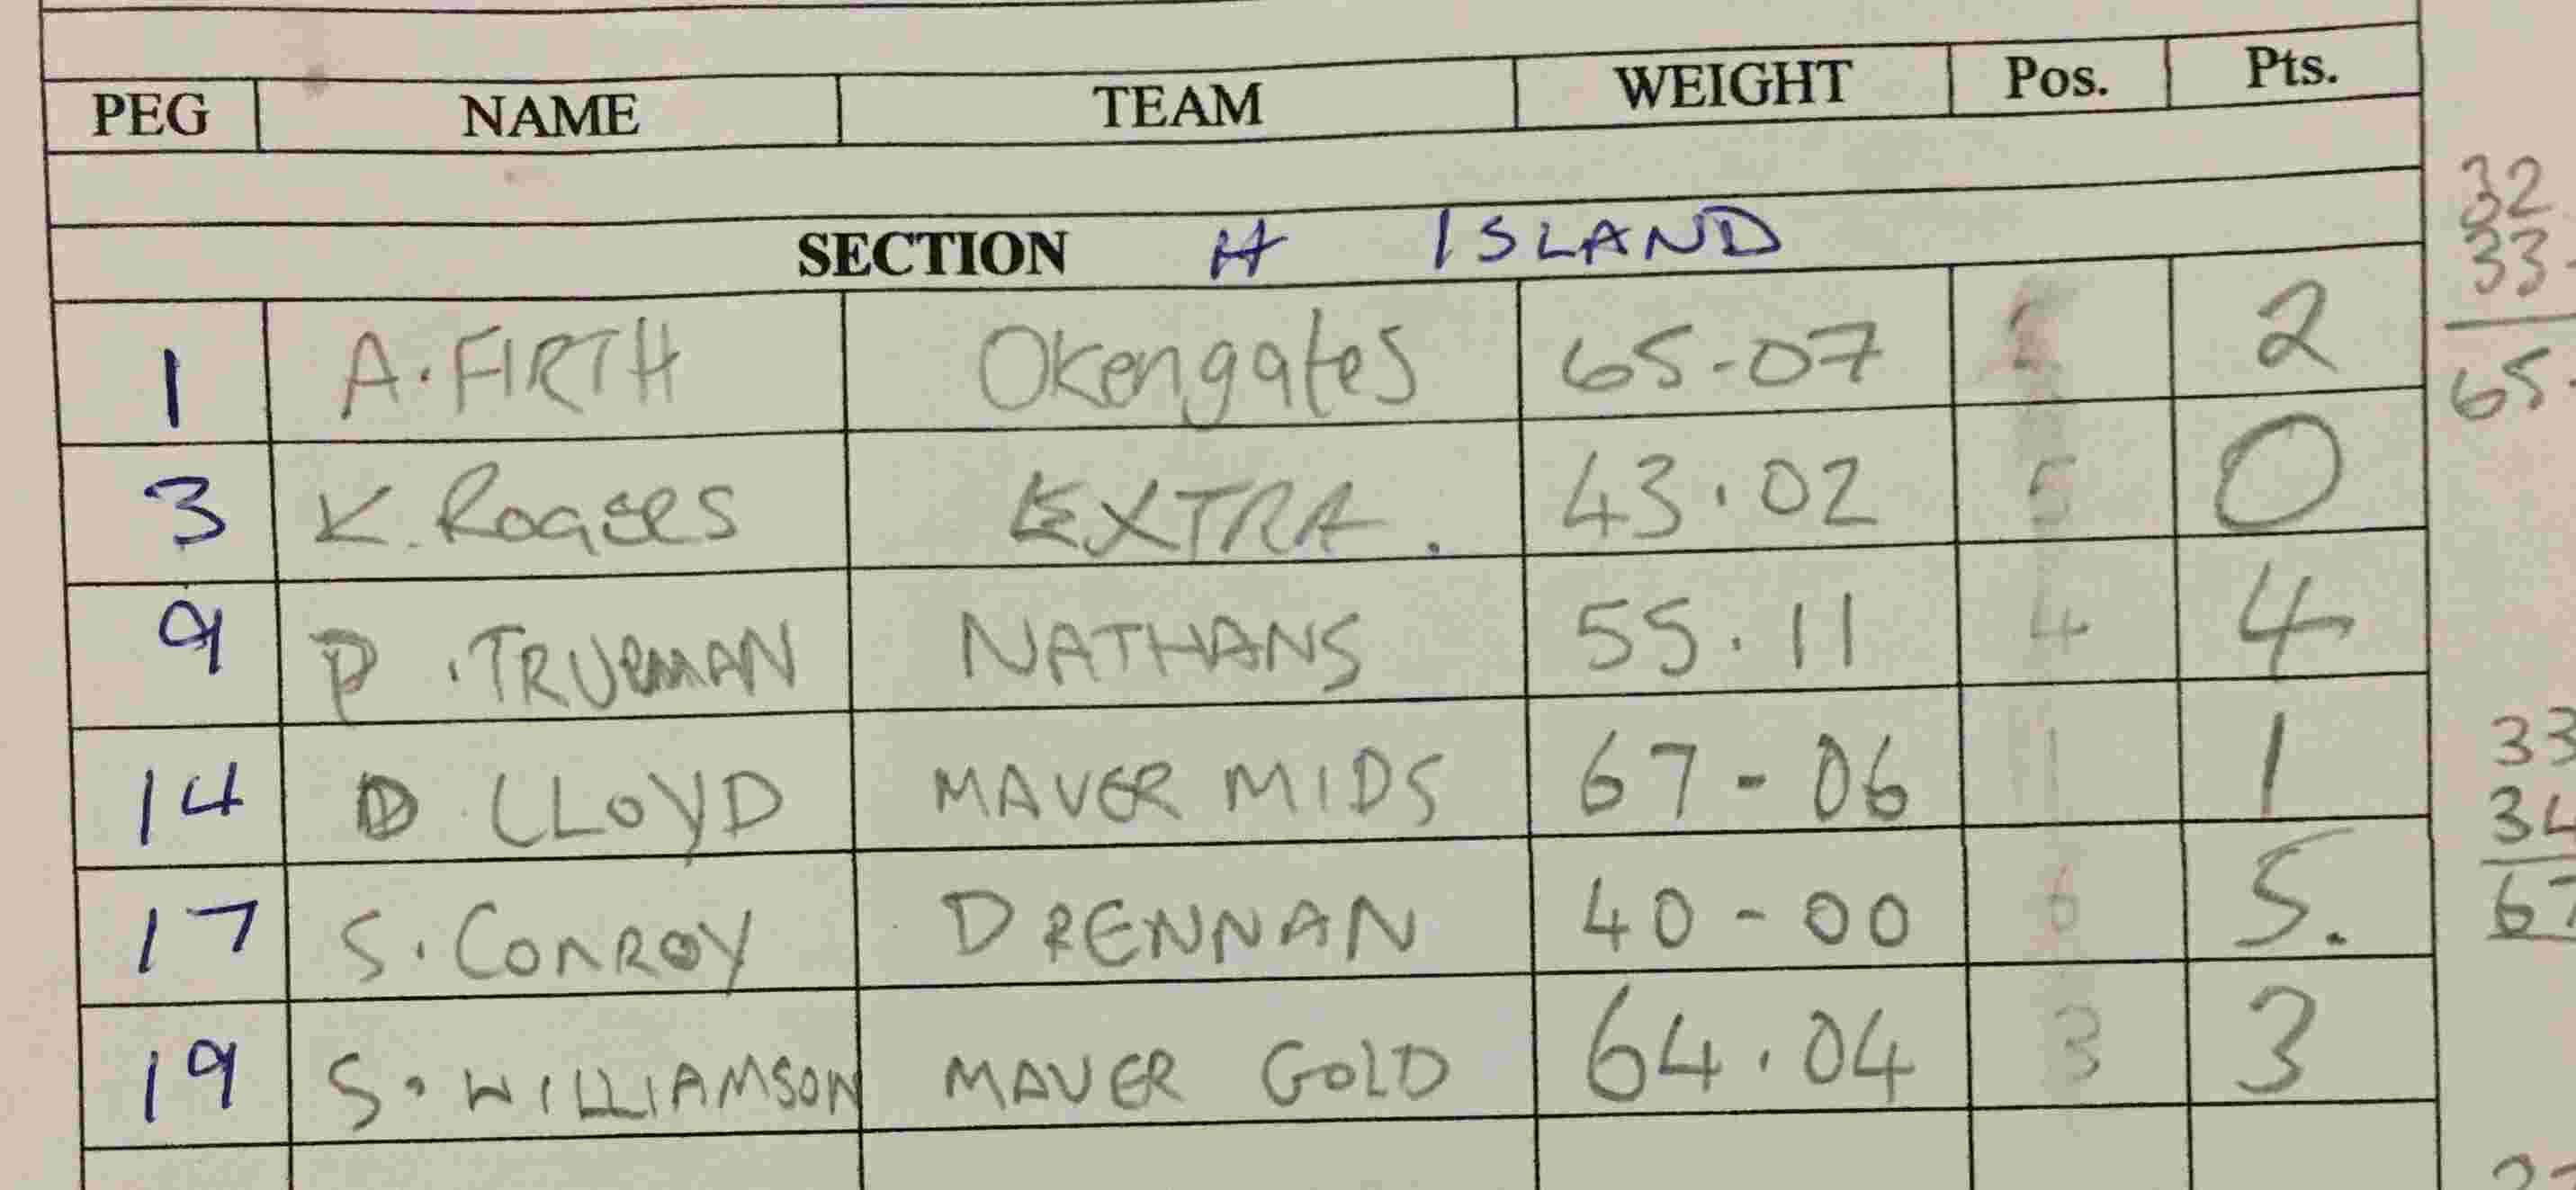 PEG NAME TEAM WEIGHT Pos. Pts.
SECTION H ISLAND
1 A. FIRTH Okengates 65-07 2 2
3 K. Rogers EXTRA. 43.02 5 0
9 P. TRUEMAN NATHANS 55.11 4 4
14 D LLOYD MAVER MIDS 67-06 1 1
17 S. CONROY DRENNAN 40-00 6 5.
19 S. WILLIAMSON MAVER GOLD 64.04 3 3
32
33
65
33
34
67